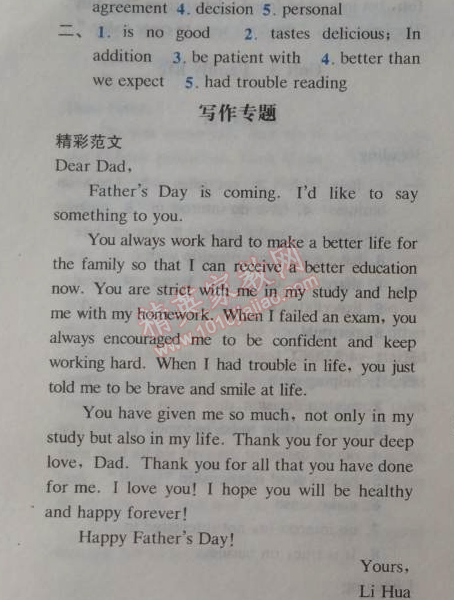 agreement 4. decision 5. personal
二、 1. is no good 2. tastes delicious; In
addition 3. be patient with 4. better than
we expect 5. had trouble reading
写作专题
精彩范文
Dear Dad,
Father's Day is coming. I'd like to say
something to you.
You always work hard to make a better life for
the family so that I can receive a better education
now. You are strict with me in my study and help
me with my homework. When I failed an exam, you
always encouraged me to be confident and keep
working hard. When I had trouble in life, you just
told me to be brave and smile at life.
You have given me so much, not only in my
study but also in my life. Thank you for your deep
love, Dad. Thank you for all that you have done
for me. I love you! I hope you will be healthy
and happy forever!
Happy Father's Day!
Yours,
Li Hua
精英家教网
www.1010jiajiao.com